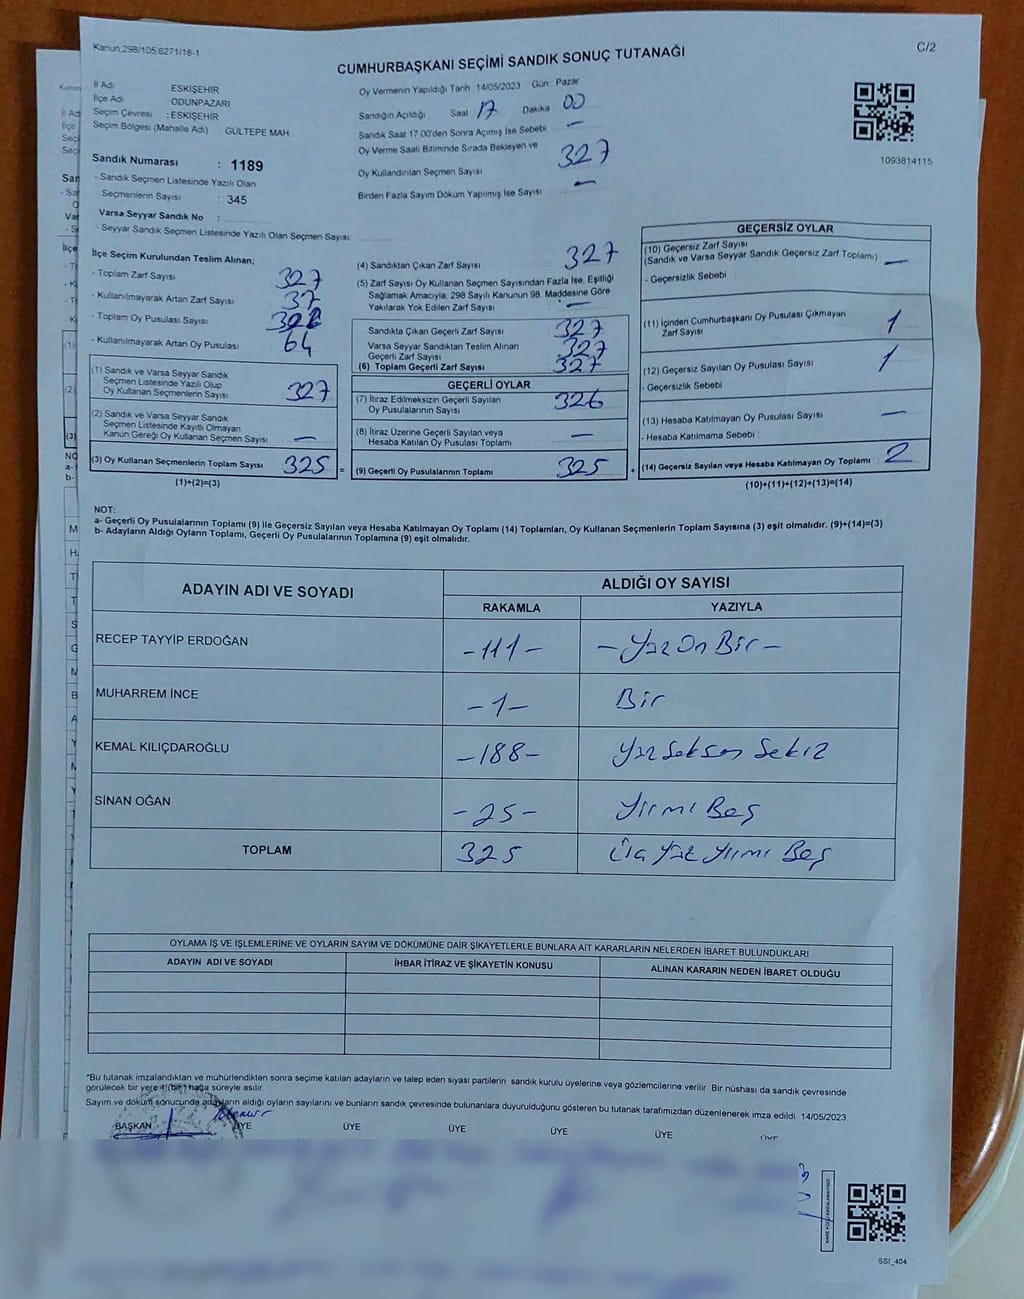 Kanun.298/105.6271/18-1
C/2
CUMHURBAŞKANI SEÇİMİ SANDIK SONUÇ TUTANAĞI
İl Adı ESKIŞEHİR
İlçe Adı : ODUNPAZARI
Seçim Çevresi : ESKIŞEHİR
Seçim Bölgesi (Mahalle Adı) GÜLTEPE MAH
Sandık Numarası : 1189
- Sandık Seçmen Listesinde Yazılı Olan
Seçmenlerin Sayısı : 345
Varsa Seyyar Sandık No :
- Seyyar Sandık Seçmen Listesinde Yazılı Olan Seçmen Sayısı:
Oy Vermenin Yapıldığı Tarih 14/05/2023 Gün Pazar
Sandığın Açıldığı Saat 17 Dakika 00
Sandık Saat 17.00'den Sonra Açımış İse Sebebi —
Oy Verme Saati Bitiminde Sırada Bekleyen ve
Oy Kullandırılan Seçmen Sayısı 327
Birden Fazla Sayım Döküm Yapılmış İse Sayısı —
1093814115
İlçe Seçim Kurulundan Teslim Alınan;
- Toplam Zarf Sayısı 327
- Kullanılmayarak Artan Zarf Sayısı 37
- Toplam Oy Pusulası Sayısı
- Kullanılmayarak Artan Oy Pusulası 64
(1) Sandık ve Varsa Seyyar Sandık
Seçmen Listesinde Yazılı Olup
Oy Kullanan Seçmenlerin Sayısı 327
(2) Sandık ve Varsa Seyyar Sandık
Seçmen Listesinde Kayıtlı Olmayan
Kanun Gereği Oy Kullanan Seçmen Sayısı —
(3) Oy Kullanan Seçmenlerin Toplam Sayısı 325 =
(1)+(2)=(3)
(4) Sandıktan Çıkan Zarf Sayısı 327
(5) Zarf Sayısı Oy Kullanan Seçmen Sayısından Fazla İse, Eşitliği
Sağlamak Amacıyla, 298 Sayılı Kanunun 98. Maddesine Göre
Yakılarak Yok Edilen Zarf Sayısı —
Sandıkta Çıkan Geçerli Zarf Sayısı 327
Varsa Seyyar Sandıktan Teslim Alınan
Geçerli Zarf Sayısı 327
(6) Toplam Geçerli Zarf Sayısı 327
GEÇERLİ OYLAR
(7) İtiraz Edilmeksizin Geçerli Sayılan
Oy Pusulalarının Sayısı 326
(8) İtiraz Üzerine Geçerli Sayılan veya
Hesaba Katılan Oy Pusulası Toplamı —
(9) Geçerli Oy Pusulalarının Toplamı 325 +
GEÇERSİZ OYLAR
(10) Geçersiz Zarf Sayısı
(Sandık ve Varsa Seyyar Sandık Geçersiz Zarf Toplamı) —
- Geçersizlik Sebebi :
(11) İçinden Cumhurbaşkanı Oy Pusulası Çıkmayan
Zarf Sayısı 1
(12) Geçersiz Sayılan Oy Pusulası Sayısı 1
- Geçersizlik Sebebi :
(13) Hesaba Katılmayan Oy Pusulası Sayısı —
- Hesaba Katılmama Sebebi :
(14) Geçersiz Sayılan veya Hesaba Katılmayan Oy Toplamı : 2
(10)+(11)+(12)+(13)=(14)
NOT:
a- Geçerli Oy Pusulalarının Toplamı (9) ile Geçersiz Sayılan veya Hesaba Katılmayan Oy Toplamı (14) Toplamları, Oy Kullanan Seçmenlerin Toplam Sayısına (3) eşit olmalıdır. (9)+(14)=(3)
b- Adayların Aldığı Oyların Toplamı, Geçerli Oy Pusulalarının Toplamına (9) eşit olmalıdır.
ADAYIN ADI VE SOYADI ALDIĞI OY SAYISI
RAKAMLA YAZIYLA
RECEP TAYYİP ERDOĞAN -111- -Yüz On Bir-
MUHARREM İNCE -1- Bir
KEMAL KILIÇDAROĞLU -188- Yüz Seksen Sekiz
SİNAN OĞAN -25- Yirmi Beş
TOPLAM 325 Üç Yüz Yirmi Beş
OYLAMA İŞ VE İŞLEMLERİNE VE OYLARIN SAYIM VE DÖKÜMÜNE DAİR ŞİKAYETLERLE BUNLARA AİT KARARLARIN NELERDEN İBARET BULUNDUKLARI
ADAYIN ADI VE SOYADI İHBAR İTİRAZ VE ŞİKAYETİN KONUSU ALINAN KARARIN NEDEN İBARET OLDUĞU
*Bu tutanak imzalandıktan ve mühürlendikten sonra seçime katılan adayların ve talep eden siyasi partilerin sandık kurulu üyelerine veya gözlemcilerine verilir. Bir nüshası da sandık çevresinde
görülecek bir yere 1 (bir) hafta süreyle asılır.
Sayım ve döküm sonucunda adayların aldığı oyların sayılarını ve bunların sandık çevresinde bulunanlara duyurulduğunu gösteren bu tutanak tarafımızdan düzenlenerek imza edildi. 14/05/2023
BAŞKAN ÜYE ÜYE ÜYE ÜYE ÜYE ÜYE
SSI_404